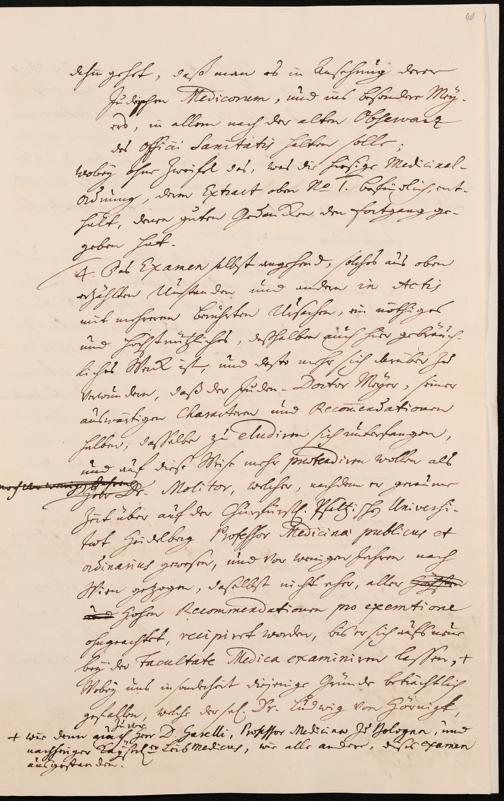 dahin gehet, daß man es in Ansehung derer
Jüdischen Medicorum, und ins besondere Mey-
ers, in allem nach der alten Observanz
des Officii Sanitatis halten solle;
wobey ohne Zweifel das, was die hiesige Medicinal-
Ordnung, deren Extract oben No 1. befindlich, ent-
hält, denen guten Gedancken den Fortgang ge-
geben hat.
4. Das Examen selbst angehend, solches aus oben
erzählten Umständen und andern in Actis
mit mehreren berührten Ursachen, ein nöthiges
und höchstnützliches, deßhalben auch hier gebräuch-
liches Werk ist, und desto mehr sich darüber zu
verwundern, daß der Juden-Doctor Meyer, seiner
auswärtigen Characteren und Recommendationen
halber, dasselbe zu eludiren sich unterfangen,
und auf diese Weise mehr praetendiren wollen als
Herr Dr. Molitor, welcher, nachdem er geraume
Zeit über auf der Churfürstl. Pfältzischen Universi-
taet Heidelberg Professor Medicinae publicus et
ordinarius gewesen, und vor wenigen Jahren nach
Wien gezogen, daselbst nicht eher, aller
hohen Recommendationen pro exemtione
ohngeachtet, recipirt worden, bis er sich aufs neue
bey der Facultate Medica examiniren lassen, +
Wobey uns insonderheit diejenige Gründe beträchtlich
gefallen, welche der sel. Dr. Ludwig von Hörnigk,
+ wie denn auch Herr D. Garelli, Professor Medicinae zu Bologna, und
nachheriger Kayserl. Leib Medicus, wie alle andere, dieses Examen
ausgestanden.